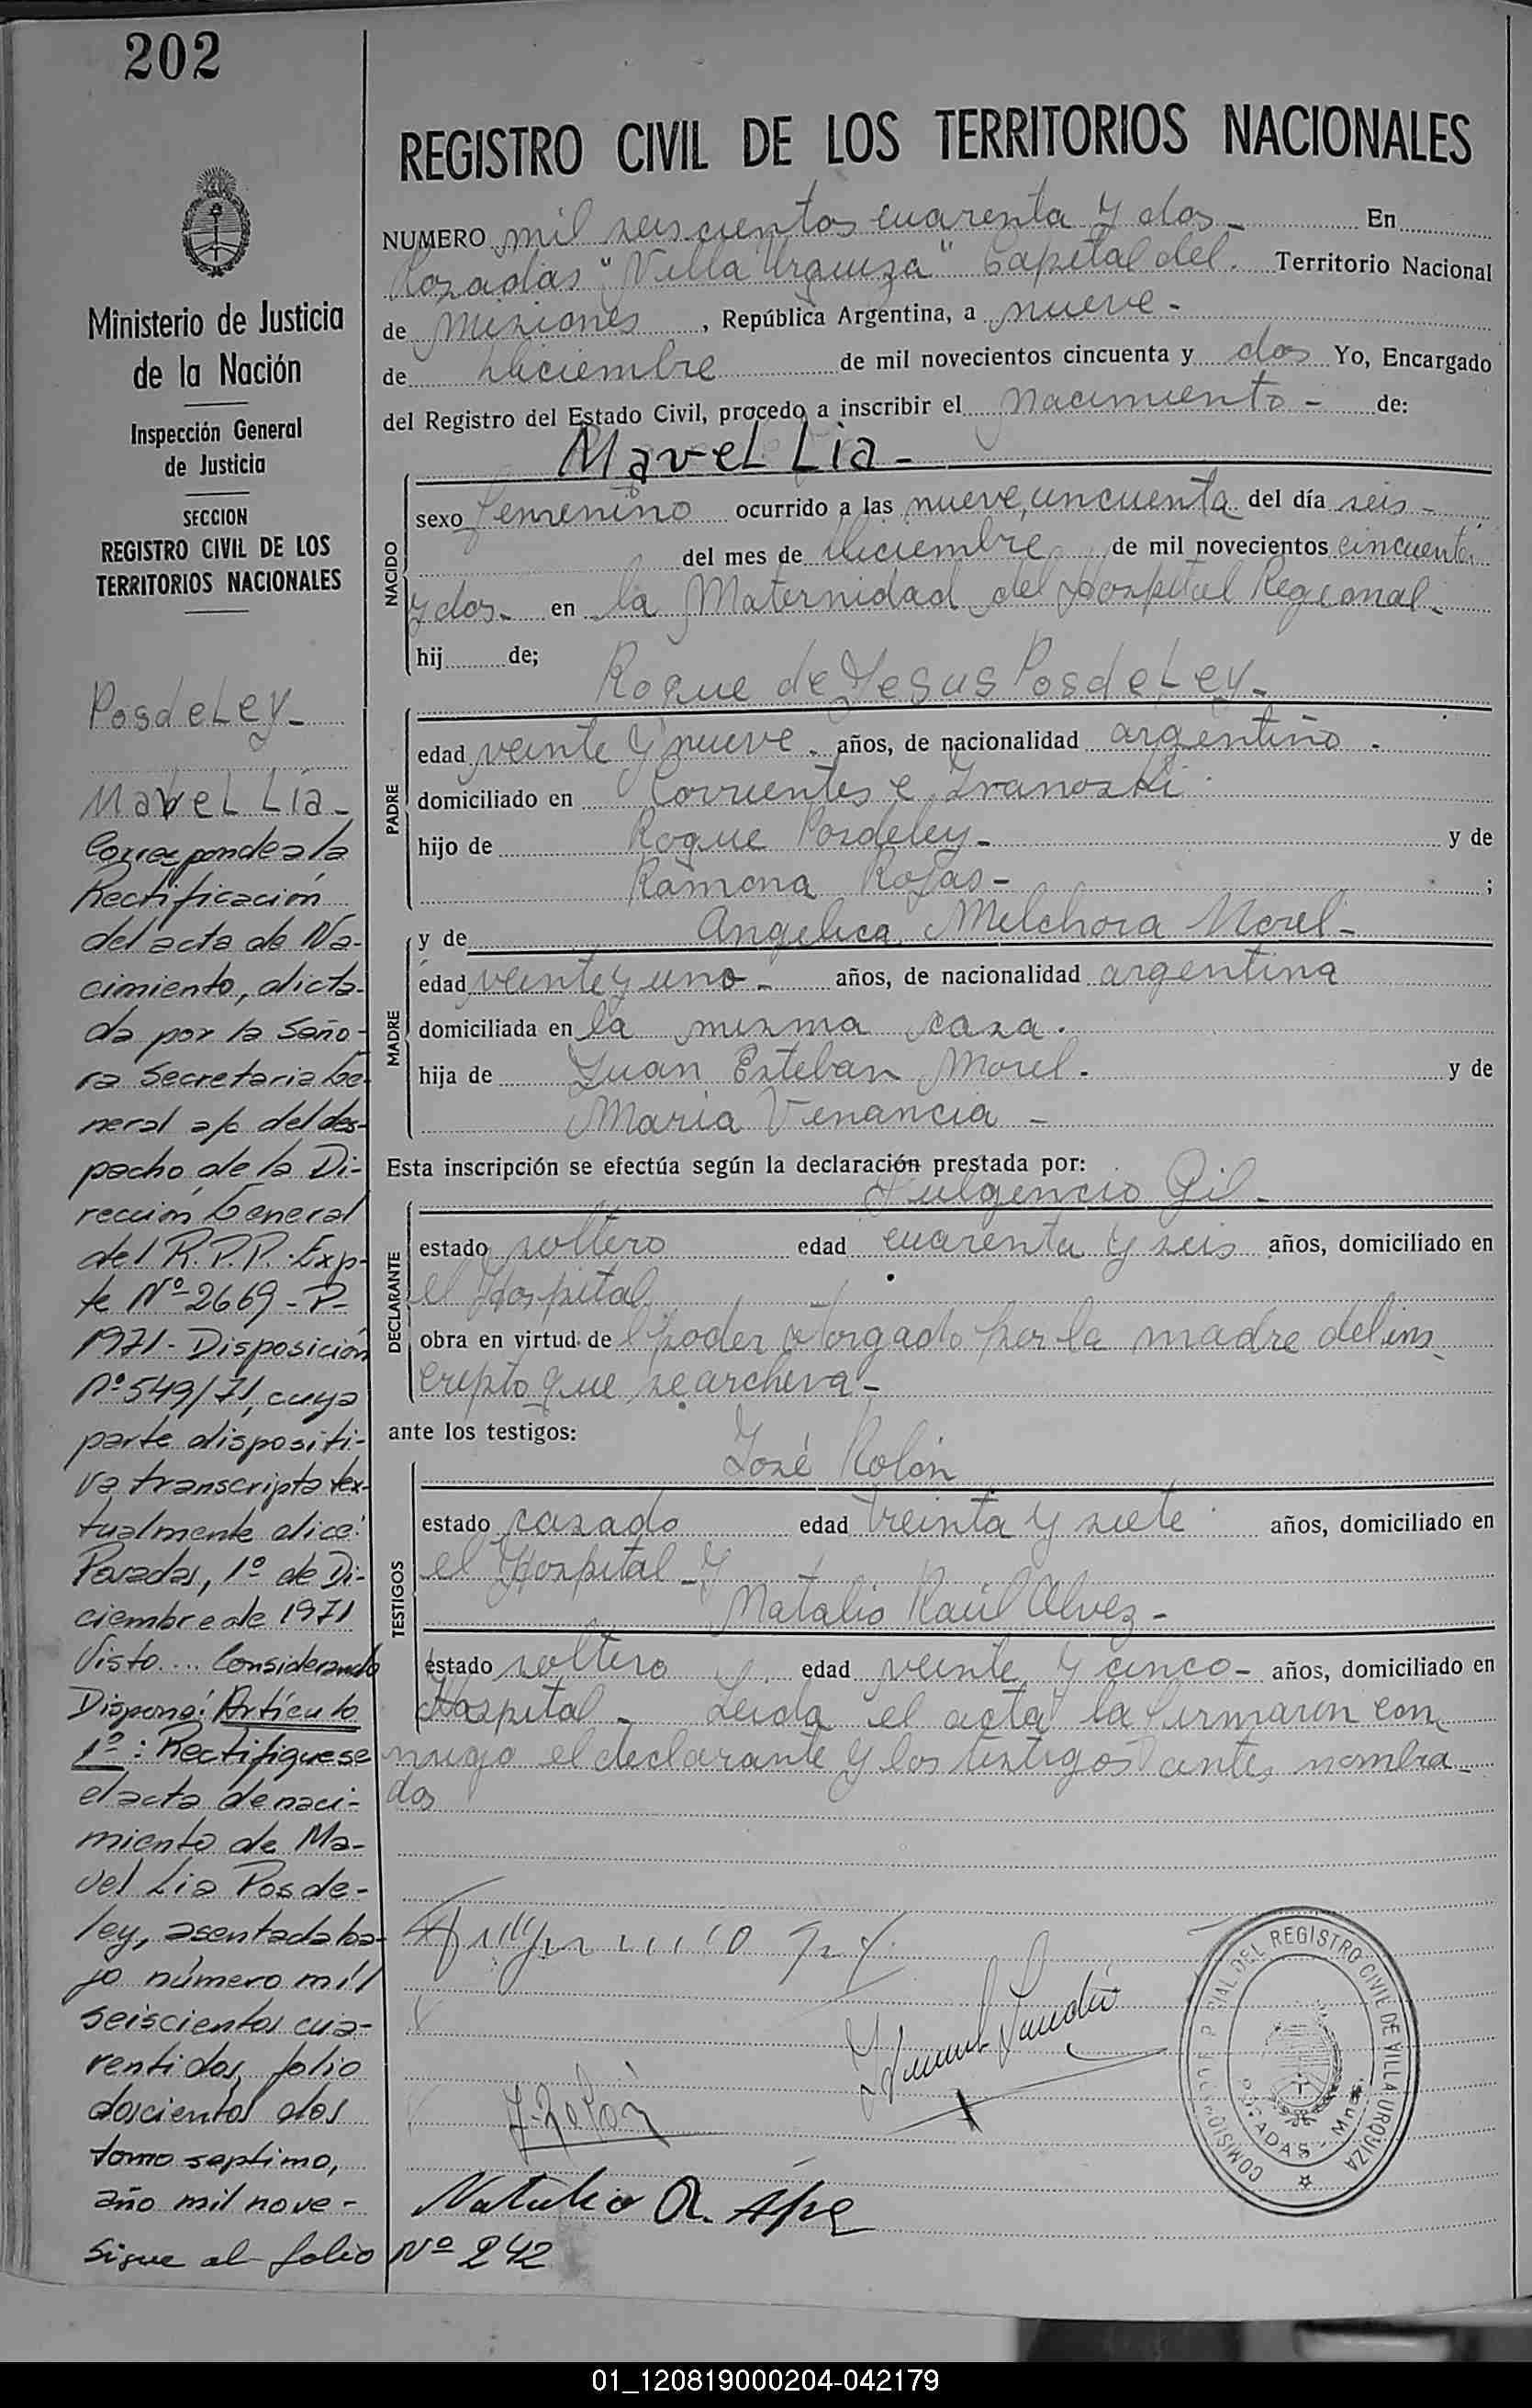 202
REGISTRO CIVIL DE LOS TERRITORIOS NACIONALES
NUMERO mil seiscientos cuarenta y dos - En
Posadas "Villa Urquiza" Capital del Territorio Nacional
de Misiones, República Argentina, a nueve -
de Diciembre de mil novecientos cincuenta y dos Yo, Encargado
del Registro del Estado Civil, procedo a inscribir el nacimiento - de:
Mavel Lia -
NACIDO
sexo femenino ocurrido a las nueve, cincuenta del día seis -
del mes de diciembre de mil novecientos cincuenta
y dos - en la Maternidad del Hospital Regional -
hij de;
Roque de Jesus Posdeley -
PADRE
edad veinte y nueve - años, de nacionalidad argentino -
domiciliado en Corrientes e Ivanoski
hijo de Roque Posdeley - y de
Ramona Rojas - ;
MADRE
y de Angelica Melchora Morel -
edad veinte y uno - años, de nacionalidad argentina
domiciliada en la misma casa.
hija de Juan Esteban Morel - y de
Maria Venancia -
Esta inscripción se efectúa según la declaración prestada por:
Fulgencio Gil -
DECLARANTE
estado soltero edad cuarenta y seis años, domiciliado en
el Hospital
obra en virtud de l poder otorgado por la madre del ins
cripto que se archiva -
ante los testigos:
José Rolón
TESTIGOS
estado casado edad treinta y siete años, domiciliado en
el Hospital - y
Natalio Raúl Alvez -
estado soltero edad veinte y cinco - años, domiciliado en
Hospital - Leida el acta la firmaron con
migo el declarante y los testigos antes nombra
dos
Ministerio de Justicia
de la Nación
Inspección General
de Justicia
SECCION
REGISTRO CIVIL DE LOS
TERRITORIOS NACIONALES
Posdeley -
Mavel Lia -
Corresponde a la
Rectificación
del acta de Na-
cimiento, dicta-
da por la Seño-
ra Secretaria Ge-
neral a/c del des-
pacho de la Di-
rección General
del R.P.P. Exp-
te Nº 2669 - P -
1971 - Disposición
Nº 549/71, cuya
parte dispositi-
va transcripta tex-
tualmente dice:
Posadas, 1º de Di-
ciembre de 1971
Visto.... Considerando
Dispone: Artículo
1º: Rectifiquese
el acta de naci-
miento de Ma-
vel Lia Posde-
ley, asentada ba-
jo número mil
seiscientos cua-
rentidos, folio
doscientos dos
tomo septimo,
año mil nove -
Sigue al folio Nº 242
J. Rolón
COMISARIA DEL REGISTRO CIVIL DE VILLA URQUIZA
POSADAS - Mnes.
01_120819000204-042179